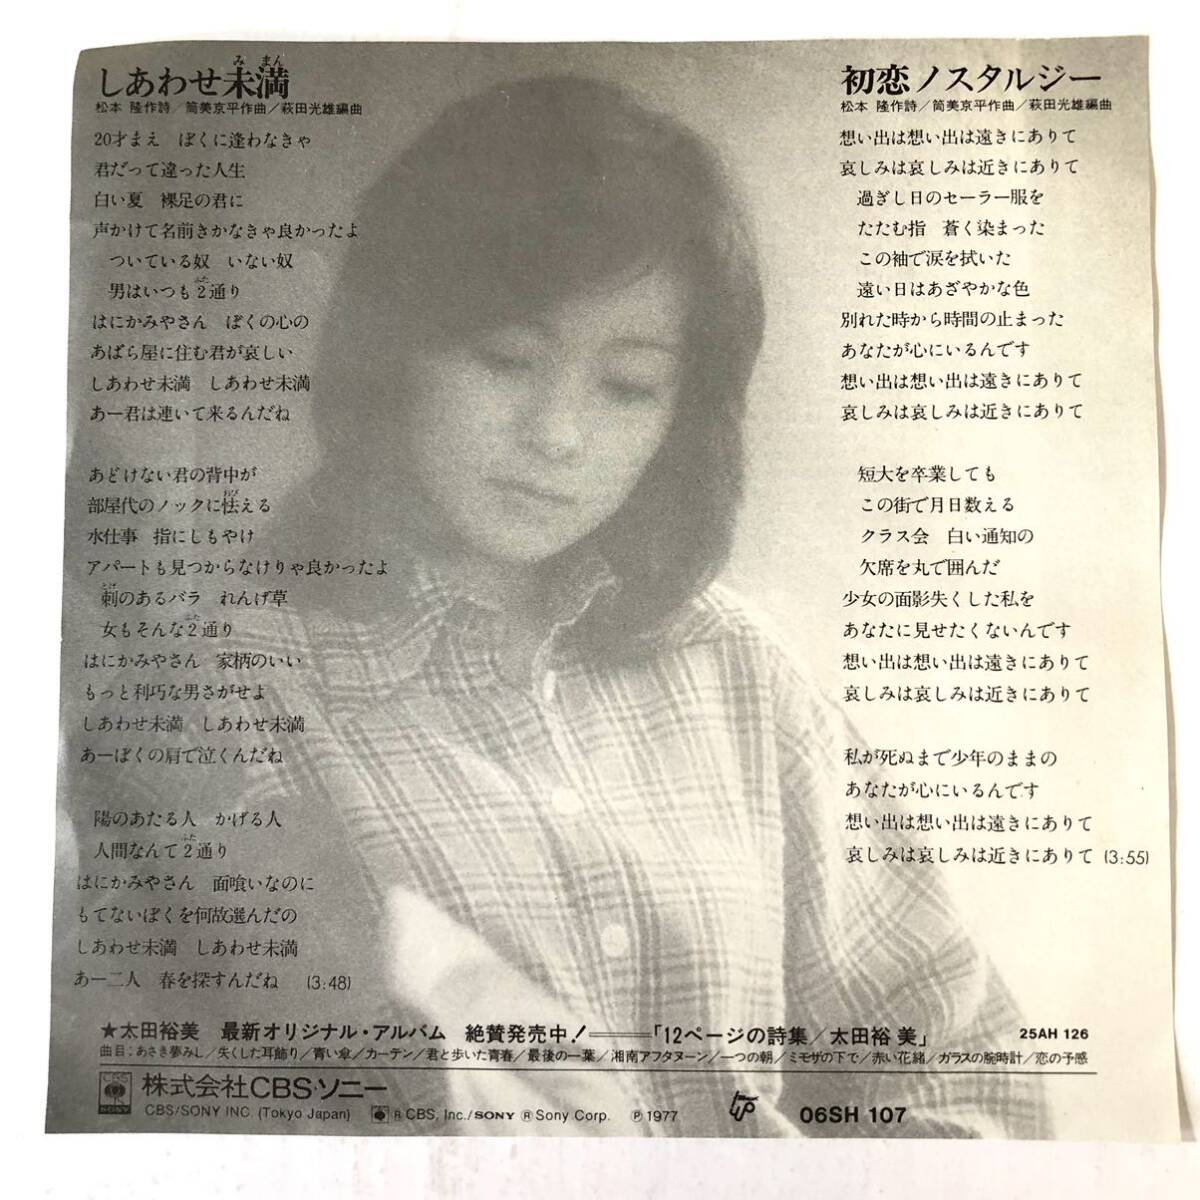 しあわせ未満
みまん
松本 隆作詩/筒美京平作曲/萩田光雄編曲
20才まえ ぼくに逢わなきゃ
君だって違った人生
白い夏 裸足の君に
声かけて名前きかなきゃ良かったよ
ついている奴 いない奴
男はいつも2通り
ふた
はにかみやさん ぼくの心の
あばら屋に住む君が哀しい
しあわせ未満 しあわせ未満
あー君は連いて来るんだね
あどけない君の背中が
部屋代のノックに怯える
おび
水仕事 指にしもやけ
アパートも見つからなけりゃ良かったよ
刺のあるバラ れんげ草
とげ
女もそんな2通り
ふた
はにかみやさん 家柄のいい
もっと利巧な男さがせよ
しあわせ未満 しあわせ未満
あーぼくの肩で泣くんだね
陽のあたる人 かげる人
人間なんて2通り
ふた
はにかみやさん 面喰いなのに
もてないぼくを何故選んだの
しあわせ未満 しあわせ未満
あー二人 春を探すんだね (3:48)
初恋ノスタルジー
松本 隆作詩/筒美京平作曲/萩田光雄編曲
想い出は想い出は遠きにありて
哀しみは哀しみは近きにありて
過ぎし日のセーラー服を
たたむ指 蒼く染まった
この袖で涙を拭いた
遠い日はあざやかな色
別れた時から時間の止まった
あなたが心にいるんです
想い出は想い出は遠きにありて
哀しみは哀しみは近きにありて
短大を卒業しても
この街で月日数える
クラス会 白い通知の
欠席を丸で囲んだ
少女の面影失くした私を
あなたに見せたくないんです
想い出は想い出は遠きにありて
哀しみは哀しみは近きにありて
私が死ぬまで少年のままの
あなたが心にいるんです
想い出は想い出は遠きにありて
哀しみは哀しみは近きにありて (3:55)
★太田裕美 最新オリジナル・アルバム 絶賛発売中!――「12ページの詩集/太田裕美」 25AH 126
曲目:あさき夢みし/失くした耳飾り/青い傘/カーテン/君と歩いた青春/最後の一葉/湘南アフタヌーン/一つの朝/ミモザの下で/赤い花緒/ガラスの腕時計/恋の予感
CBS SONY 株式会社CBS・ソニー
CBS/SONY INC. (Tokyo Japan) ® CBS, Inc./SONY ® Sony Corp. ℗ 1977 06SH 107